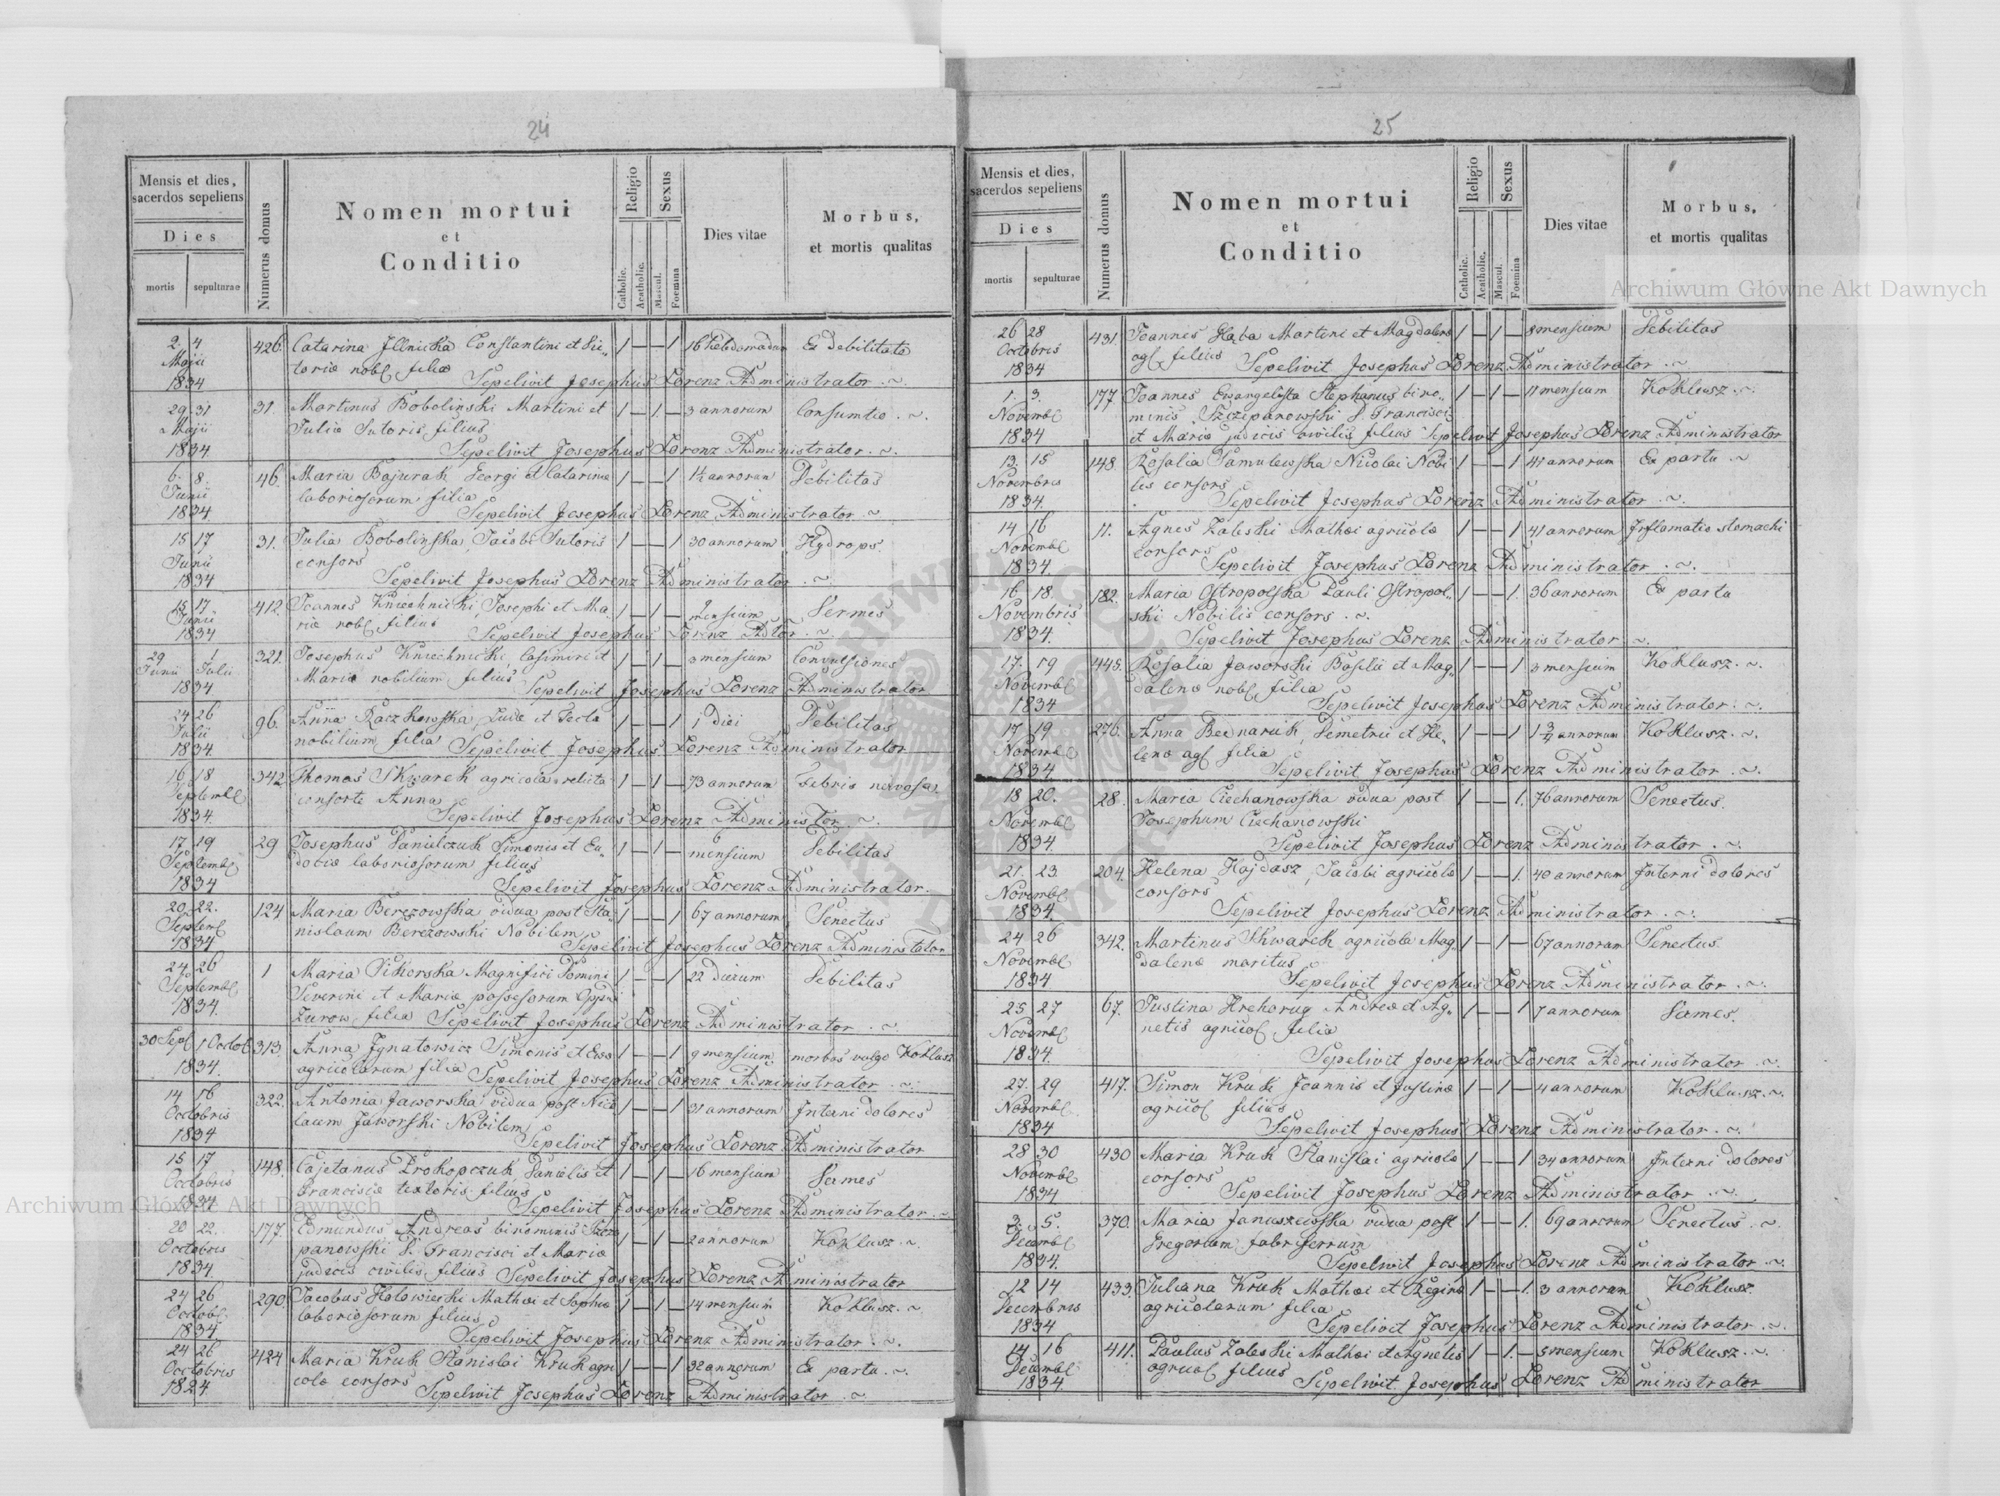 24
Mensis et dies,
sacerdos sepeliens
Dies
mortis sepulturae
Numerus domus
Nomen mortui
et
Conditio
Religio
Catholic. Acatholic.
Sexus
Mascul. Foemina
Dies vitae
Morbus,
et mortis qualitas
2. 4 426. Catarina Illnicka Constantini et Vic„ 1 — — 1 16 hebdomadum Ex debilitate
Maji toriæ nobl filia
1834 Sepelivit Josephus Lorenz Administrator
29 31 31. Martinus Bobolinski Martini et 1 — 1 — 3 annorum Consumtio
Maji Julia Sutoris filius
1834 Sepelivit Josephus Lorenz Administrator
6. 8. 46. Maria Bajurak Georgi et Catarina 1 — — 1 1½ annorum Debilitas
Junii laboriosorum filia
1834 Sepelivit Josephus Lorenz Administrator
15 17 31. Julia Bobolinska Jacobi Sutoris 1 — — 1 30 annorum Hydrops.
Junii consors
1834 Sepelivit Josephus Lorenz Administrator
15 17 412. Joannes Kniechnicki Josephi et Ma„ 1 — 1 — mensium Vermes
Junii riæ nobl filius
1834 Sepelivit Josephus Lorenz Adtor
29 1 321. Josephus Kniechnicki Casimiri et 1 — 1 — 3 mensium Convulsiones
Junii Julii Maria nobilium filius
1834 Sepelivit Josephus Lorenz Administrator
24 26 96. Anna Raczkowska Lucæ et Tecla 1 — — 1 1 diei Debilitas
Julii nobilium filia
1834 Sepelivit Josephus Lorenz Administrator
16 18 342 Thomas Skwarek agricola relicta 1 — 1 — 73 annorum Febris nervosa
Septembl consorte Anna
1834 Sepelivit Josephus Lorenz Administor
17 19 29 Josephus Danielczuk Simonis et Eu„ 1 — 1 — mensium Debilitas
Septembl dociæ laboriosorum filius
1834 Sepelivit Josephus Lorenz Administrator
20 22. 124 Maria Berezowska vidua post Sta„ 1 — — 1 67 annorum Senectus
Septembl nislaum Berezowski Nobilem
1834 Sepelivit Josephus Lorenz Administator
24 26 1 Maria Sikorska Magnifici Domini 1 — — 1 22 dierum Debilitas
Septembl Severini et Mariæ possesorum Oppid
1834. Zurow filia Sepelivit Josephus Lorenz Administrator
30 Sept 1 Octob 313. Anna Ignatowicz Simonis et Eva 1 — — 1 9 mensium morbus vulgo Koklusz
1834. agricolarum filia Sepelivit Josephus Lorenz Administrator
14 16 322. Antonia Jaworska vidua post Nico 1 — — 1 31 annorum Interni dolores
Octobris laum Jaworski Nobilem
1834 Sepelivit Josephus Lorenz Administrator
15 17 148. Cajetanus Prokopczuk Danielis et 1 — 1 — 16 mensium Vermes
Octobris Francisca textoris filius
1834 Sepelivit Josephus Lorenz Administrator
20 22. 177. Edmundus Andreas binominis Szcze 1 — 1 — 2 annorum Koklusz
Octobris panowski S. Francisci et Maria
1834. judicis civilis filius Sepelivit Josephus Lorenz Administrator
24 26 290. Jacobus Hatowierki Mathei et Sophia 1 — 1 — 14 mensium Koklusz
Octobl laboriosorum filius
1834. Sepelivit Josephus Lorenz Administrator
24 26 424 Maria Kruk Stanislai Kruk agri 1 — — 1 32 annorum Ex partu
Octobris colæ consors
1824. Sepelivit Josephus Lorenz Administrator
25
Mensis et dies,
sacerdos sepeliens
Dies
mortis sepulturae
Numerus domus
Nomen mortui
et
Conditio
Religio
Catholic. Acatholic.
Sexus
Mascul. Foemina
Dies vitae
Morbus,
et mortis qualitas
26 28 431. Joannes Hąba Martini et Magdalena 1 — 1 — 8 mensium Debilitas
Octobris agl filius
1834 Sepelivit Josephus Lorenz Administrator
1. 3. 177. Joannes Ewangelista Stephanus bino„ 1 — 1 — 11 mensium Koklusz
Novembl minis Szczepanowski S. Francisci
1834 et Maria judicis civilis filius Sepelivit Josephus Lorenz Administrator
13. 15 148. Rosalia Samulewska Nicolai Nobi 1 — — 1 41 annorum Ex partu
Novembris lis consors
1834. Sepelivit Josephus Lorenz Administrator
14 16 11. Agnes Zaleski Mathæi agricolæ 1 — — 1 41 annorum Inflamatio stomachi
Novembl consors
1834. Sepelivit Josephus Lorenz Administrator
16 18. 182. Maria Ostropolska Pauli Ostropol„ 1 — — 1. 36 annorum Ex partu
Novembris ski Nobilis consors
1834. Sepelivit Josephus Lorenz Administrator
17. 19 445. Rosalia Jaworski Basilii et Mag„ 1 — — 1 3 mensium Koklusz
Novembl dalenæ nobl filia
1834 Sepelivit Josephus Lorenz Administrator
17 19 276. Anna Bednaruk Demetrii et He„ 1 — — 1 1 3/4 annorum Koklusz
Novembl lenæ agl filia
1834. Sepelivit Josephus Lorenz Administrator
18 20. 28. Maria Ciechanowska vidua post 1 — — 1. 76 annorum Senectus.
Novembl Josephum Ciechanowski
1834 Sepelivit Josephus Lorenz Administrator
21. 23 204. Helena Hajdasz Jacobi agricolæ 1 — — 1. 40 annorum Interni dolores
Novembl consors
1834. Sepelivit Josephus Lorenz Administrator
24 26 342. Martinus Skwarek agricola Mag„ 1 — 1 — 67 annorum Senectus
Novembl dalenæ maritus
1834 Sepelivit Josephus Lorenz Administrator
25 27 67. Justina Hrehorug Andreæ et Ag„ 1 — — 1 7 annorum Vermes
Novembl netis agricol filia
1834. Sepelivit Josephus Lorenz Administrator
27. 29 417. Simon Kruk Joannis et Justina 1 — 1 — 4 annorum Koklusz
Novembl. agricol filius
1834 Sepelivit Josephus Lorenz Administrator
28 30 430 Maria Kruk Stanislai agricolæ 1 — — 1 34 annorum Interni dolores
Novembl consors
1834 Sepelivit Josephus Lorenz Administrator
3. 5. 370. Maria Januszewska vidua post 1 — — 1. 69 annorum Senectus
Decembl Gregorium fabr ferrum
1834. Sepelivit Josephus Lorenz Administrator
12 14 433. Juliana Kruk Mathæi et Regina 1 — — 1. 3 annorum Koklusz
Decembris agricolarum filia
1834 Sepelivit Josephus Lorenz Administrator
14 16 411. Paulus Zaleski Mathæi et Agnetis 1 — 1. — 5 mensium Koklusz
Decembl agricol filius
1834 Sepelivit Josephus Lorenz Administrator
Archiwum Główne Akt Dawnych
Archiwum Główne Akt Dawnych